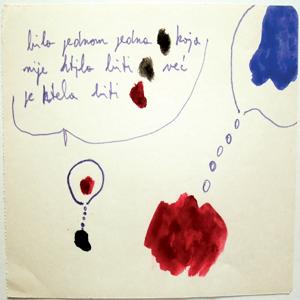 bila jednom jedna koja
nije htjla biti već
je htela biti